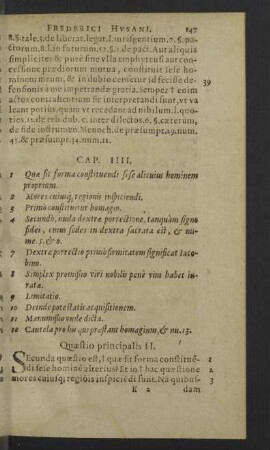 FREDERICI HVSANI. 147
8. §. tale. §. de liberat. legat. l. iurisgentium. 7. §. pa-
ctorum. 8. l. in futurum. 17. §. 1. de pact. Aut aliquis
simpliciter & pure sine vlla emphyteusi aut con-
cessione prædiorum mutua, constituit sese ho-
minem meum, & in dubio censetur id fecisse de- 39
fensionis a me impetrandæ gratia. Semper .n. enim
actus contrahentium sic interpretandi sunt, vt va-
leant potius, quam vt recedant ad nihilum. l. quo-
ties. 12. de reb. dub. c. inter dilectos. 6. §. cæterum,
de fide instrument. Menoch. de præsumpt. 29. num.
43. & præsumpt. 34. num. 11.
CAP. IIII.
1 Quæ sit forma constituendi sese alicuius hominem
proprium.
2 Mores cuiusq; regionis inspiciendi.
3 Primò constituitur homagio.
4 Secundò, nuda dextræ porrectione, tanquàm signo
fidei, cuius sedes in dextra sacrata est, & nu-
me. 5. & 6.
7 Dextræ porrectio primò firmitatem significat Iaco-
bino.
8 Simplex promissio viri nobilis penè vim habet iu-
rata.
9 Limitatio.
10 Deinde potestatis acquisitionem.
11 Manumissio vnde dicta.
12 Cautela pro his qui præstant homagium, & nu. 13.
Quæstio principalis II.
SEcunda quæstio est, 1 quæ sit forma constituē- 1
di sese hominē alterius? Et in 1 hac quæstione 2
mores cuiusq; regiōis inspiciēdi sunt. Nā quibus- 3
K 2 dam